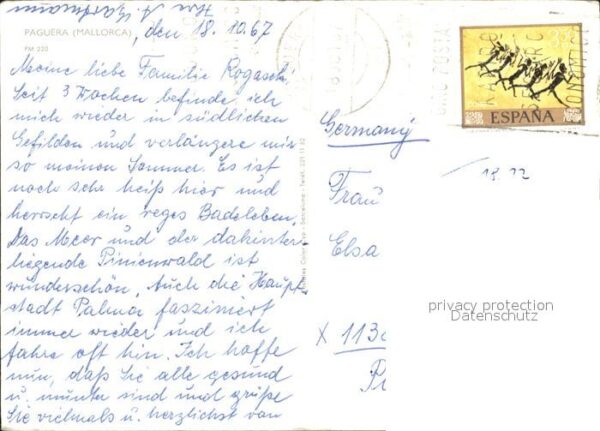 Ihr A.
PAGUERA (MALLORCA), den 18.10.67
PM 220
Meine liebe Familie Rogasch!
Seit 3 Wochen befinde ich
mich wieder in südlichen
Gefilden und verlängere mir
so meinen Sommer. Es ist
noch sehr heiß hier und
herrscht ein reges Badeleben.
Das Meer und der dahinter-
liegende Pinienwald ist
wunderschön. Auch die Haupt-
stadt Palma fasziniert
immer wieder und ich
fahre oft hin. Ich hoffe
nun, daß Sie alle gesund
u. munter sind und grüße
Sie vielmals u. herzlichst von
Germany
Frau
Elsa
X 113
CORREOS
ESPAÑA
privacy protection
Datenschutz